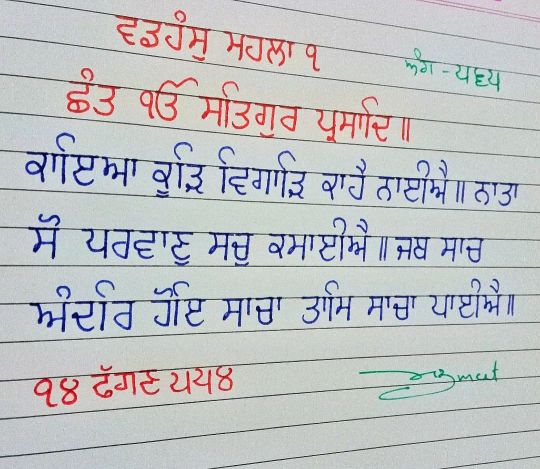 ਵਡਹੰਸੁ ਮਹਲਾ ੧
ਅੰਗ - ੫੬੫
ਛੰਤ ੴ ਸਤਿਗੁਰ ਪ੍ਰਸਾਦਿ॥
ਕਾਇਆ ਕੂੜਿ ਵਿਗਾੜਿ ਕਾਹੈ ਨਾਈਐ॥ ਨਾਤਾ
ਸੋ ਪਰਵਾਣੁ ਸਚੁ ਕਮਾਈਐ॥ ਜਬ ਸਾਚ
ਅੰਦਰਿ ਹੋਇ ਸਾਚਾ ਤਾਮਿ ਸਾਚਾ ਪਾਈਐ॥
੧੪ ਫੱਗਣ ੫੫੪